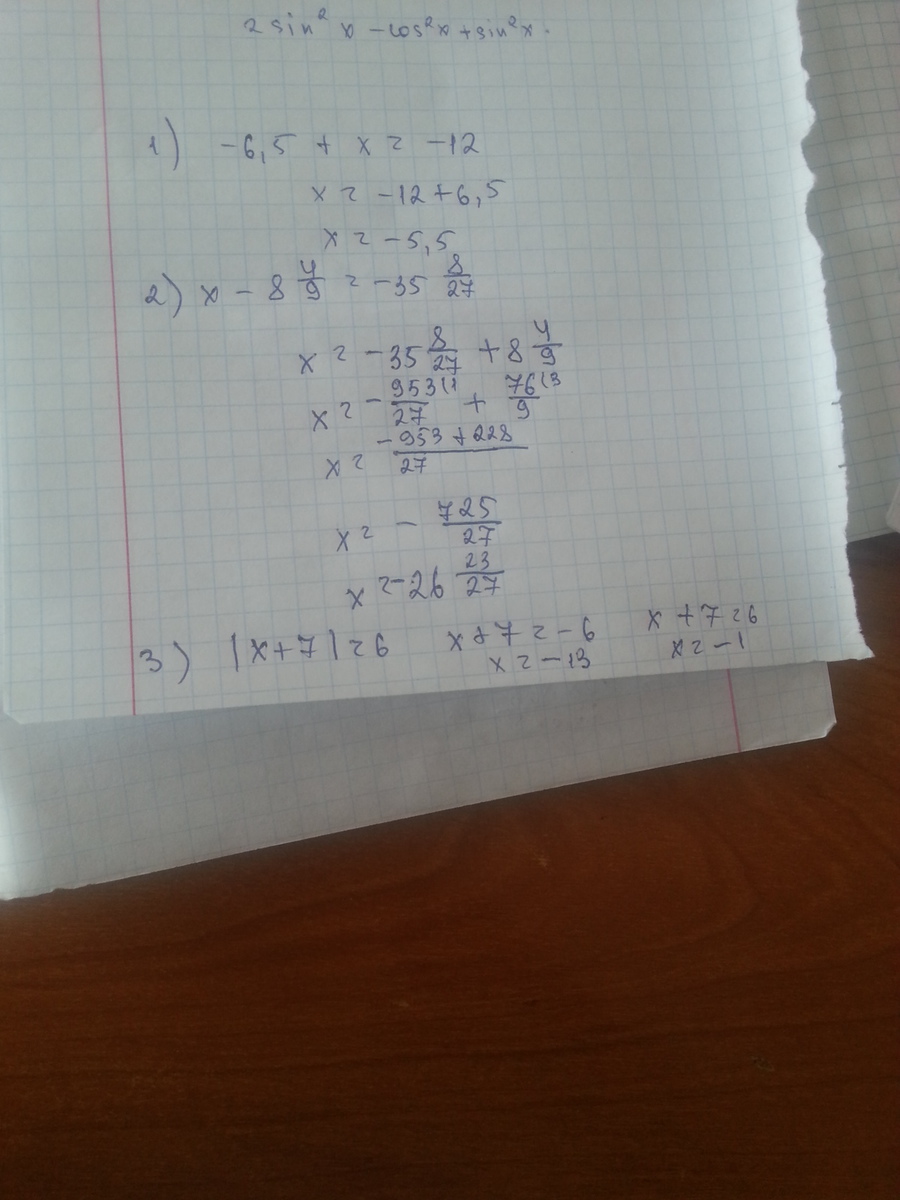 2 sin² x - cos²x + sin²x.
1) -6,5 + x = -12
x = -12+6,5
x = -5,5
2) x - 8 4/9 = -35 8/27
x = -35 8/27 + 8 4/9
x = - 953(1/27 + 76(3/9
x = -953 + 228/27
x = - 725/27
x = -26 23/27
3) |x+7|=6 x+7=-6 x+7=6
x=-13 x=-1